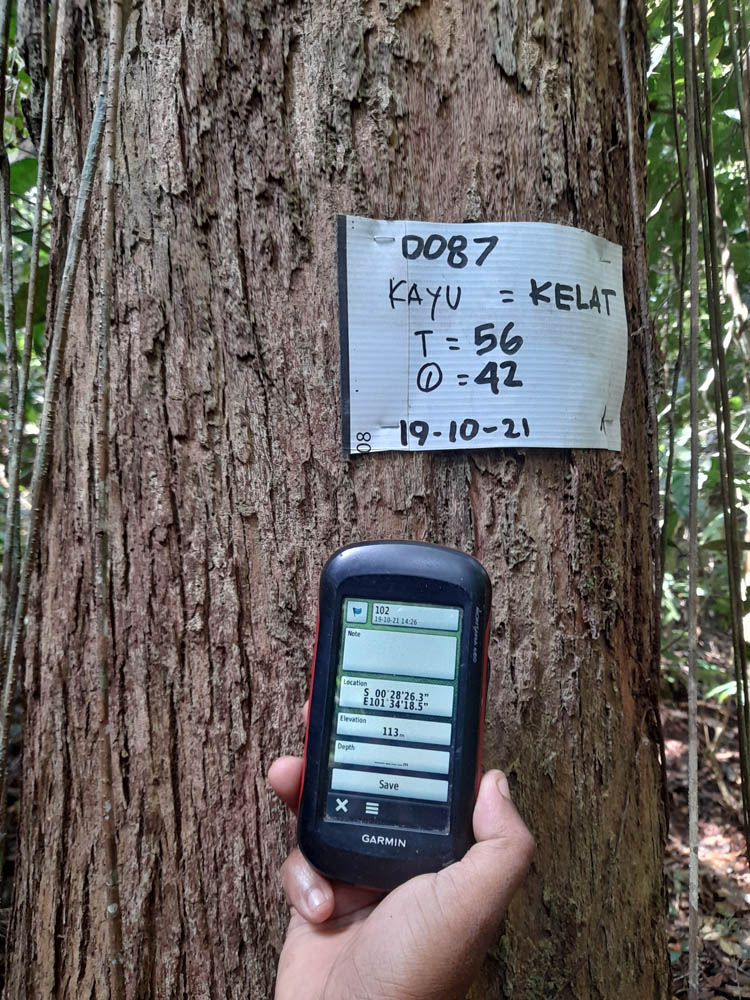 0087
KAYU = KELAT
T = 56
① = 42
19-10-21
08
102
19-10-21 14:26
Note
Location
S 00°28'26.3"
E101°34'18.5"
Elevation
113m
Depth
____m
Save
GARMIN